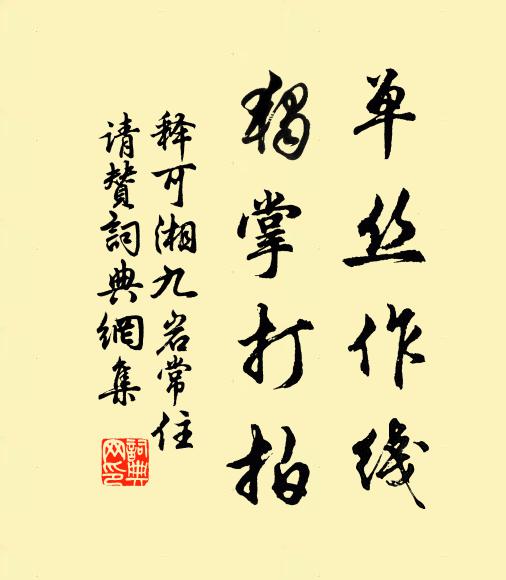 单丝作线
独掌打拍
释可湘九岩常住
请赞詞典網集
詞典网印